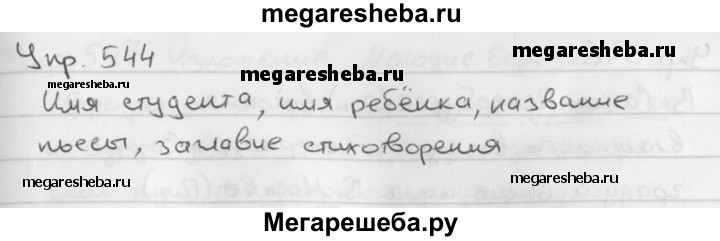 megaresheba.ru
Упр. 544
megaresheba.ru
megaresheba.ru
Имя студента, имя ребёнка, название
пьесы, заглавие стихотворения
megaresheba.ru
megaresheba.ru
Мегарешеба.ру